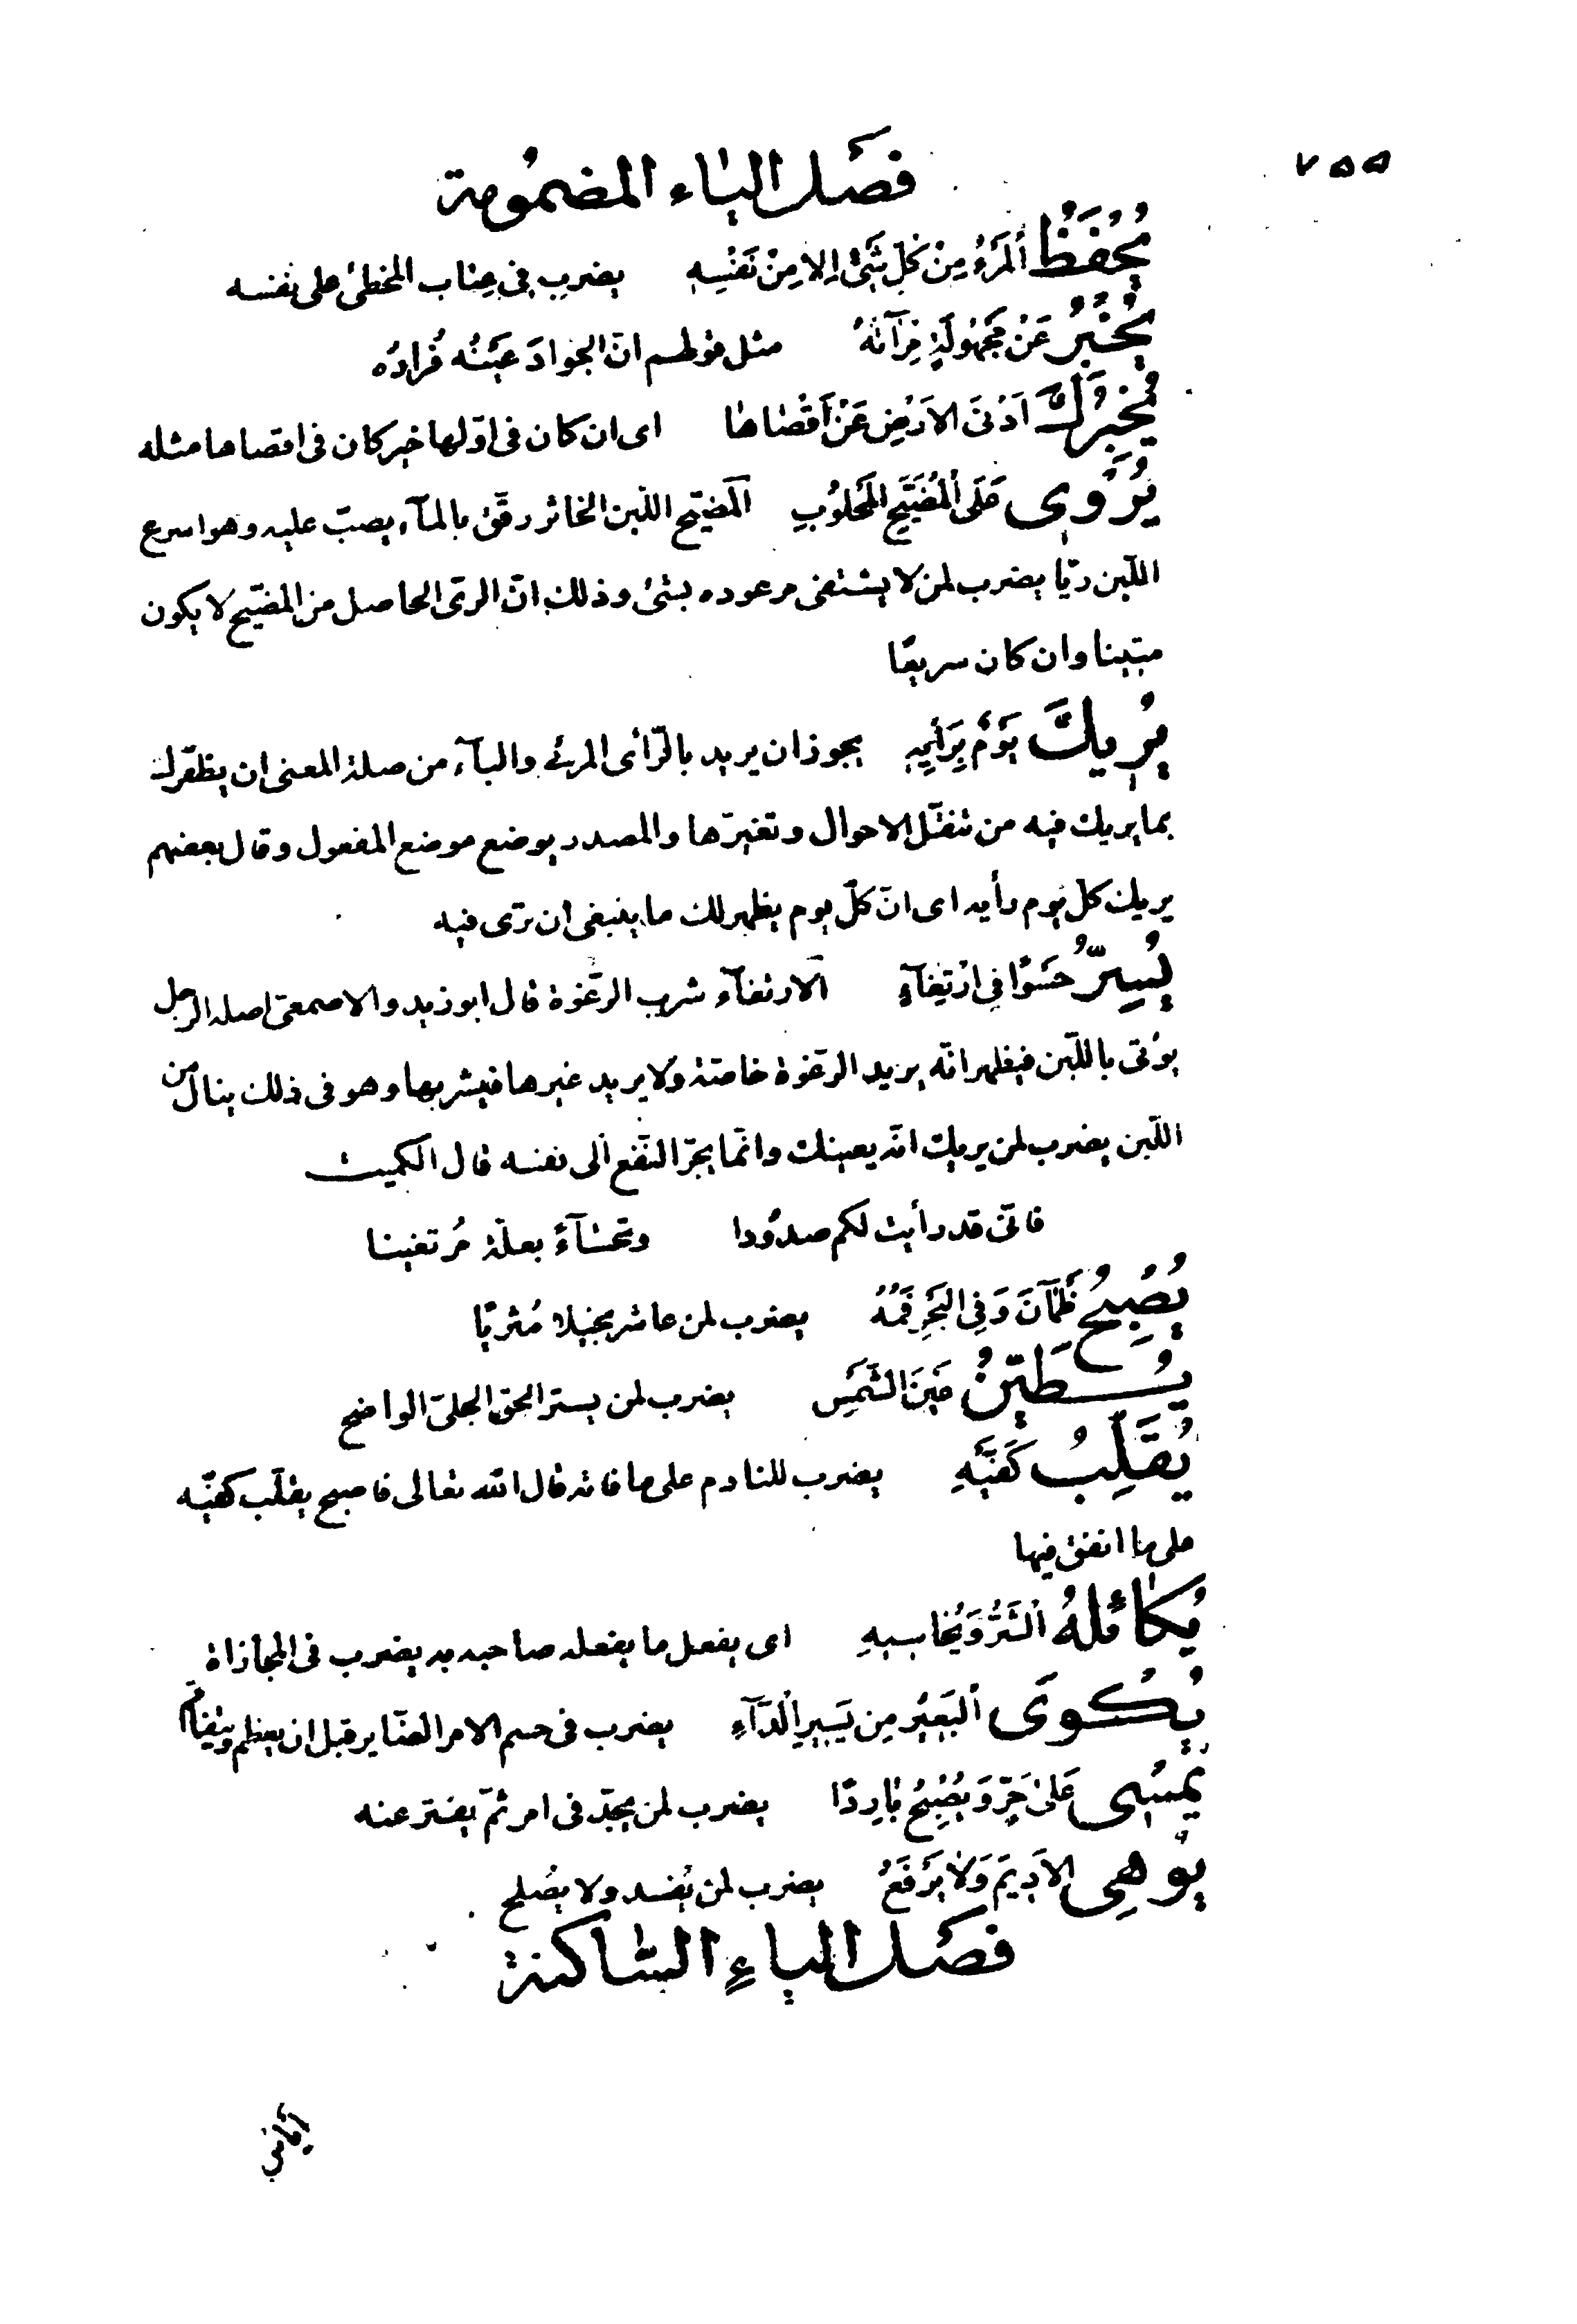 ٧٥٥
فَصَل الیٰاء المضمُومة
يُحْفَظُ اَلمَرْءُ مِنْ كُلِّ شَیْءٍ اِلا مِنْ نَفْسِهِ يضرب فى عتاب المخطئ على نفسه
يُخْبِرُ عَنْ مَجْهُولَةٍ مِرْآتُهُ مثل قولهم انّ الجوادَ عَيْنُه فُرارُه
يُخْبِرُكَ اَدْنىَ الاَرْضِ عَنْ اَقْصٰاهٰا اى ان كان فى اوّلها خير كان فى اقصاها مثله
يُرْوٖى عَلَى اْلمُضَيَّحِ المَحْلُوبِ المضيّح اللّبن الخاثر رقّق بالمآء يصبّ عليه وهو اسرع
اللّبن ريّا يضرب لمن لا يشتفى موعوده بشئ وذلك انّ الرىّ الحاصل من المضيّح لا يكون
متينا وان كان سريعًا
يُرٖيكَ يَوْمٌ بِرَأْيِهِ يجوز ان يريد بالرّأى المرئى والبآء من صلة المعنى ان يظفّرك
بما يريك فيه من تنقّل الاحوال وتغيرّها والمصدر يوضع موضع المفعول وقال بعضهم
يريك كلّ يوم رأيه اى انّ كلّ يوم يظهر لك ما ينبغى ان ترى فيه
يُسِرُّ حَسْوًا فِى ارْتِغٰآءٍ الارتغآء شرب الرّغوة قال ابو زيد والاصمعىّ اصله الرّجل
يؤتى باللّبن فيظهر انّه يريد الرّغوة خاصّة ولا يريد غيرها فيشربها وهو فى ذلك ينال من
اللّبن يضرب لمن يريك انّه يعينك وانّما يجرّ النّفع الى نفسه قال الكميت
فانّى قد رأيت لكم صدُودا وتحسٰآءً بعلّة مُرتغينا
يُصْبِحُ ظَمْآنَ وَفِى البَحْرِ فَمُهُ يضرب لمن عاشر بخيلا مُثريًا
يُطَيِّنُ عَيْنَ الشَّمْسِ يضرب لمن يستر الحقّ الجلىّ الواضح
يُقَلِّبُ كَفَّيْهِ يضرب للنادم على ما فاته قال الله تعالى فاصبح يقلّب كفّيه
على ما انفق فيها
يُكٰائِلُهُ اْلشَّرَّ وَيُحٰاسِبهِ اى يفعل ما يفعله صاحبه به يضرب فى المجازاة
يُكْوَى اْلبَعٖيُر مِن يَسٖيرِ اْلدّآءِ يضرب فى حسم الامر الضّاير قبل ان يعظم ويتفاقم
يُمْسٖى عَلىٰ حَرٍّ وَيُصْبِحُ بٰارِدًا يضرب لمن يجدّ فى امر ثمّ يفتر عنه
يُوهِى الاَدٖيمَ وَلاٰ يَرْقَعُ يضرب لمن يُفسد ولا يصُلح
فصَل الياءِ السّٰاكنة